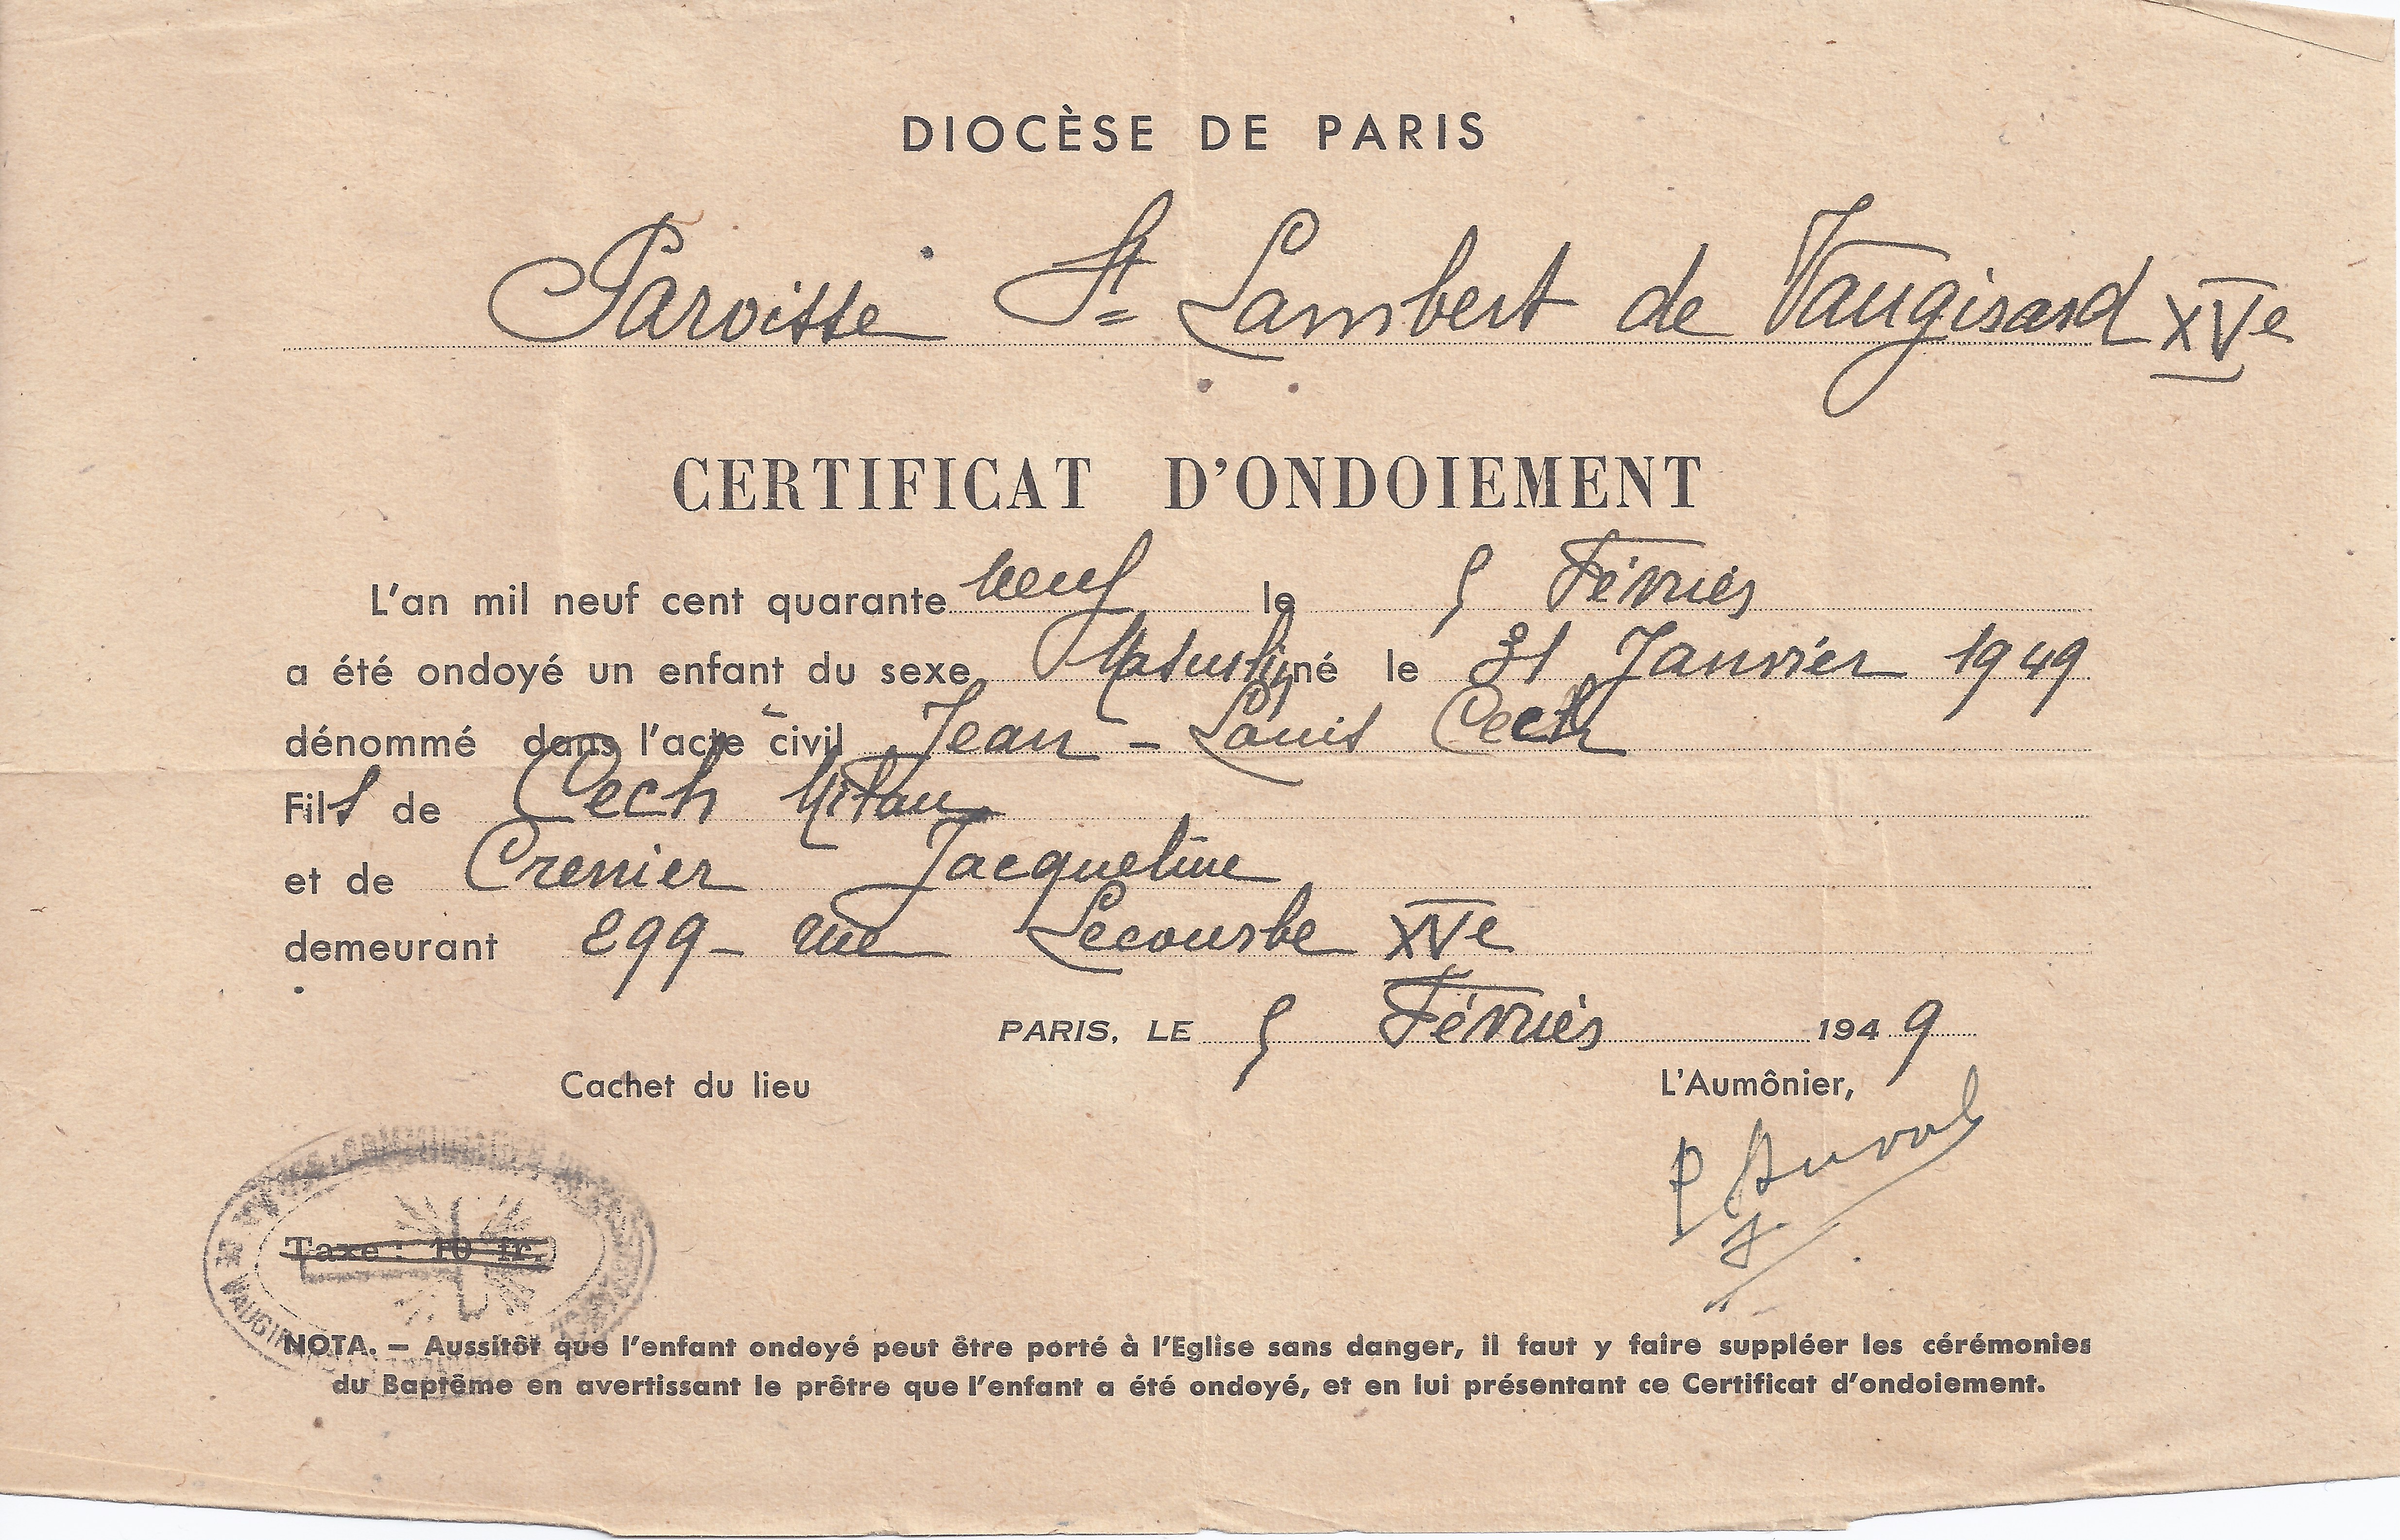 DIOCÈSE DE PARIS
Paroisse St Lambert de Vaugirard XVe
CERTIFICAT D'ONDOIEMENT
L'an mil neuf cent quarante neuf le 5 Février
a été ondoyé un enfant du sexe Masculin né le 31 Janvier 1949
dénommé dans l'acte civil Jean-Louis Cech
Fils de Cech Milan
et de Crenier Jacqueline
demeurant 299 - rue Lecourbe XVe
PARIS, LE 5 Février 1949
Cachet du lieu L'Aumônier,
P
Taxe : 10 fr.
VAUGIR
NOTA. — Aussitôt que l'enfant ondoyé peut être porté à l'Eglise sans danger, il faut y faire suppléer les cérémonies
du Baptême en avertissant le prêtre que l'enfant a été ondoyé, et en lui présentant ce Certificat d'ondoiement.